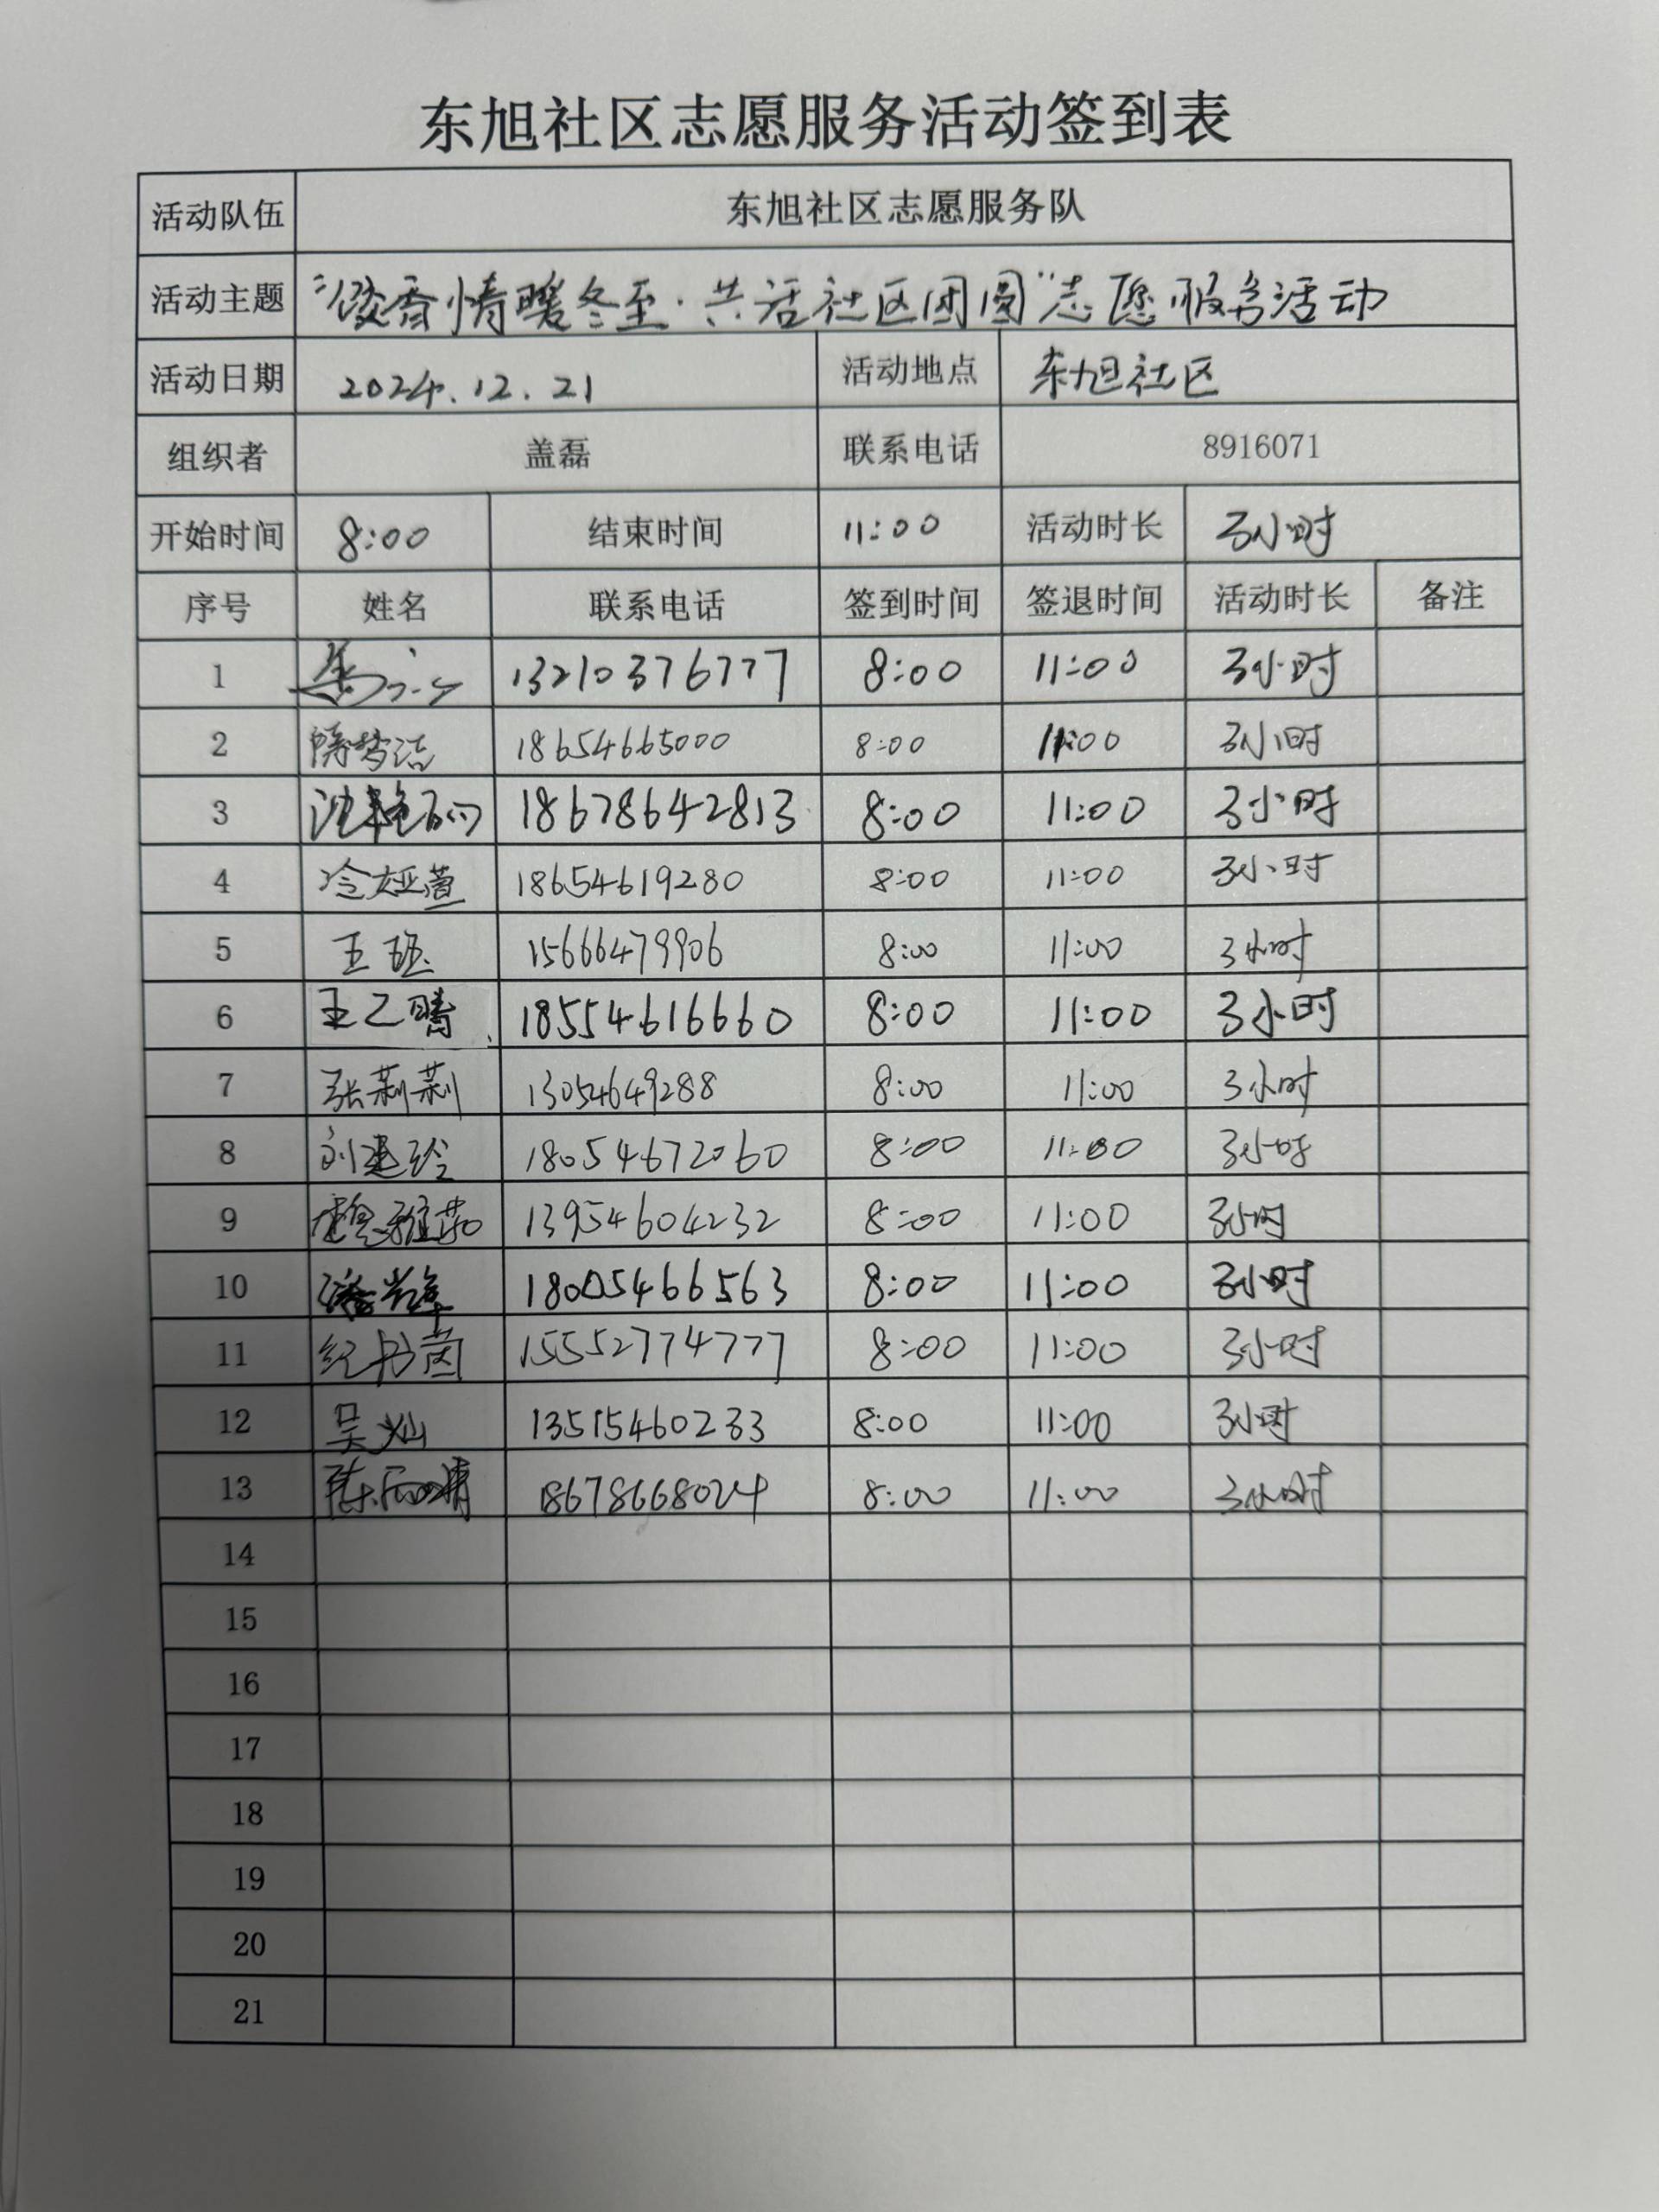 东旭社区志愿服务活动签到表
活动队伍 东旭社区志愿服务队
活动主题 “饺香情暖冬至·共话社区团圆”志愿服务活动
活动日期 2024.12.21 活动地点 东旭社区
组织者 盖磊 联系电话 8916071
开始时间 8:00 结束时间 11:00 活动时长 3小时
序号 姓名 联系电话 签到时间 签退时间 活动时长 备注
1 13210376777 8:00 11:00 3小时
2 18654665000 8:00 11:00 3小时
3 18678642813 8:00 11:00 3小时
4 冷娅萱 18654619280 8:00 11:00 3小时
5 王珏 15666479906 8:00 11:00 3小时
6 王乙晴 18554616660 8:00 11:00 3小时
7 张莉莉 13054649288 8:00 11:00 3小时
8 刘建玲 18054672060 8:00 11:00 3小时
9 13954604232 8:00 11:00 3小时
10 18005466563 8:00 11:00 3小时
11 纪书茵 15552774777 8:00 11:00 3小时
12 吴灿 13515460233 8:00 11:00 3小时
13 陈雨晴 18678668024 8:00 11:00 3小时
14
15
16
17
18
19
20
21